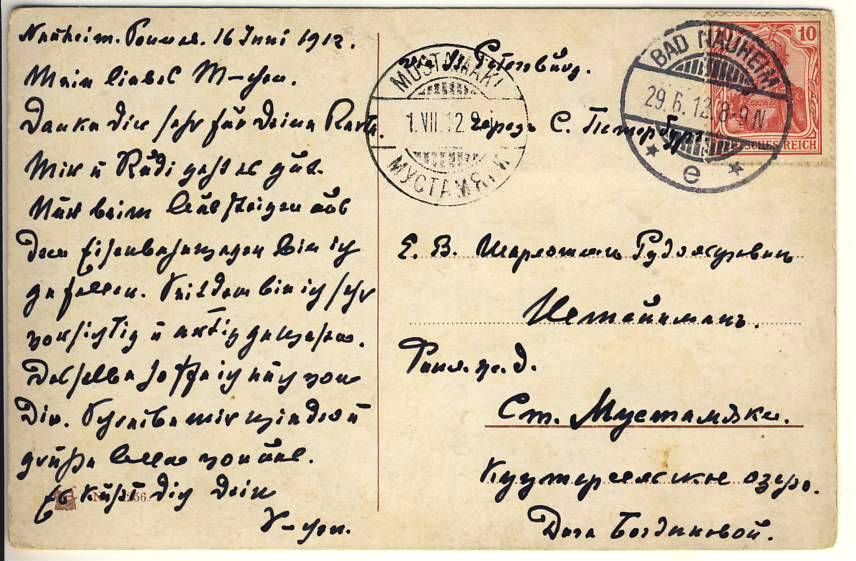 Nauheim. Sonnab. 16 Juni 1912.
Mein liebes M-chen.
Danke dir sehr für deine Karte.
Mir u Rudi geht es gut.
Nur beim Aussteigen aus
dem Eisenbahnwagen bin ich
gefallen. Seitdem bin ich sehr
vorsichtig u artig gewesen.
Dasselbe hoffe ich auch von
Dir. Schreibe mir wieder u
grüsse alles von uns.
Es küsst dich dein
-chen.
MUSTAMÄKI
1.VII.12
МУСТАМЯКИ
BAD NAUHEIM
29.6.12.8-9N
* e *
10
DEUTSCHES REICH
St. Petersburg.
городъ С. Петербургъ
Е. В. Шарлоттѣ Рудольфовнѣ
Штейнманъ.
Финл. ж. д.
Ст. Мустамяки.
озеро.
Дача Богдановой.